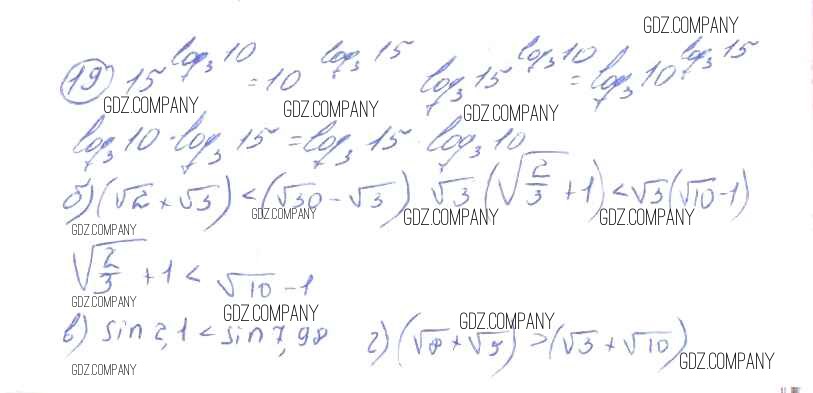 GDZ.COMPANY
19) 15^{log_3 10} = 10^{log_3 15} log_3 15^{log_3 10} = log_3 10^{log_3 15}
GDZ.COMPANY GDZ.COMPANY GDZ.COMPANY GDZ.COMPANY
log_3 10 · log_3 15 = log_3 15 · log_3 10
б) (√2 + √3) < (√30 - √3) √3(√(2/3) + 1) < √3(√10 - 1)
GDZ.COMPANY GDZ.COMPANY GDZ.COMPANY GDZ.COMPANY
√(2/3) + 1 < √10 - 1
GDZ.COMPANY GDZ.COMPANY
в) sin 2,1 < sin 7,98 г) (√8 + √5) > (√3 + √10)
GDZ.COMPANY GDZ.COMPANY GDZ.COMPANY